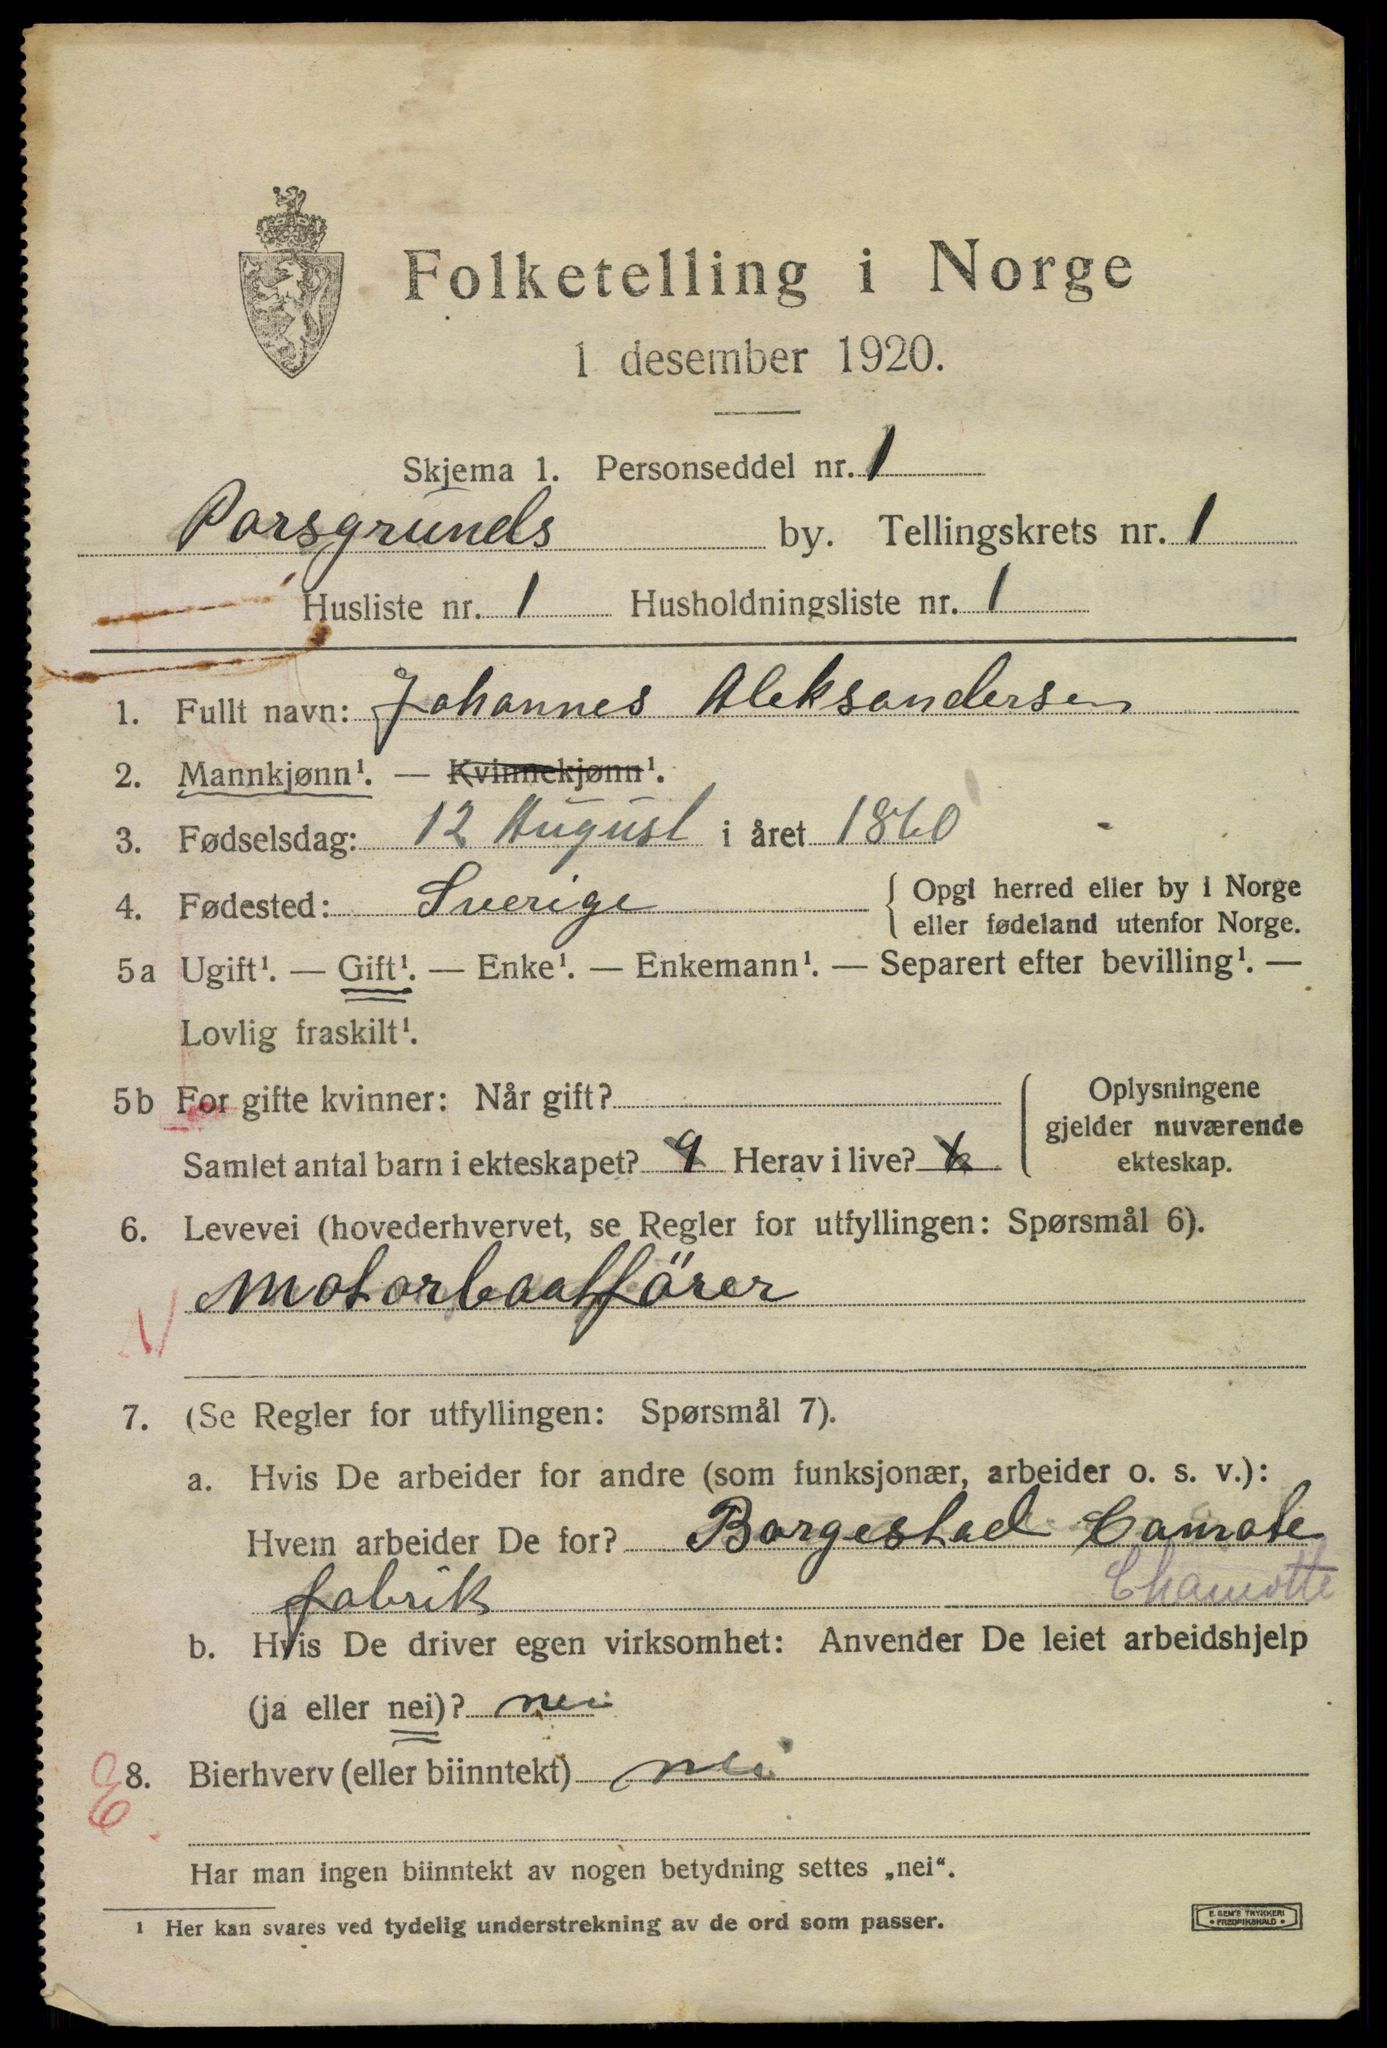 Folketelling i Norge
1 desember 1920.
Skjema 1. Personseddel nr. 1
Porsgrunds by. Tellingskrets nr. 1
Husliste nr. 1 Husholdningsliste nr. 1
1. Fullt navn: Johannes Aleksandersen
2. Mannkjønn¹. — Kvinnekjønn¹.
3. Fødselsdag: 12 August i året 1860
4. Fødested: Sverige { Opgi herred eller by i Norge
eller fødeland utenfor Norge.
5a Ugift¹. — Gift¹. — Enke¹. — Enkemann¹. — Separert efter bevilling¹. —
Lovlig fraskilt¹.
5b For gifte kvinner: Når gift?
Samlet antal barn i ekteskapet? 9 Herav i live?
Oplysningene
gjelder nuværende
ekteskap.
6. Levevei (hovederhvervet, se Regler for utfyllingen: Spørsmål 6).
Motorbaatförer
7. (Se Regler for utfyllingen: Spørsmål 7).
a. Hvis De arbeider for andre (som funksjonær, arbeider o. s. v.):
Hvem arbeider De for? Borgestad Camote
fabrik Chamotte
b. Hvis De driver egen virksomhet: Anvender De leiet arbeidshjelp
(ja eller nei)? nei
8. Bierhverv (eller biinntekt) nei
Har man ingen biinntekt av nogen betydning settes „nei“.
¹ Her kan svares ved tydelig understrekning av de ord som passer.
E. SEM'S TRYKKERI
• FREDRIKSHALD •